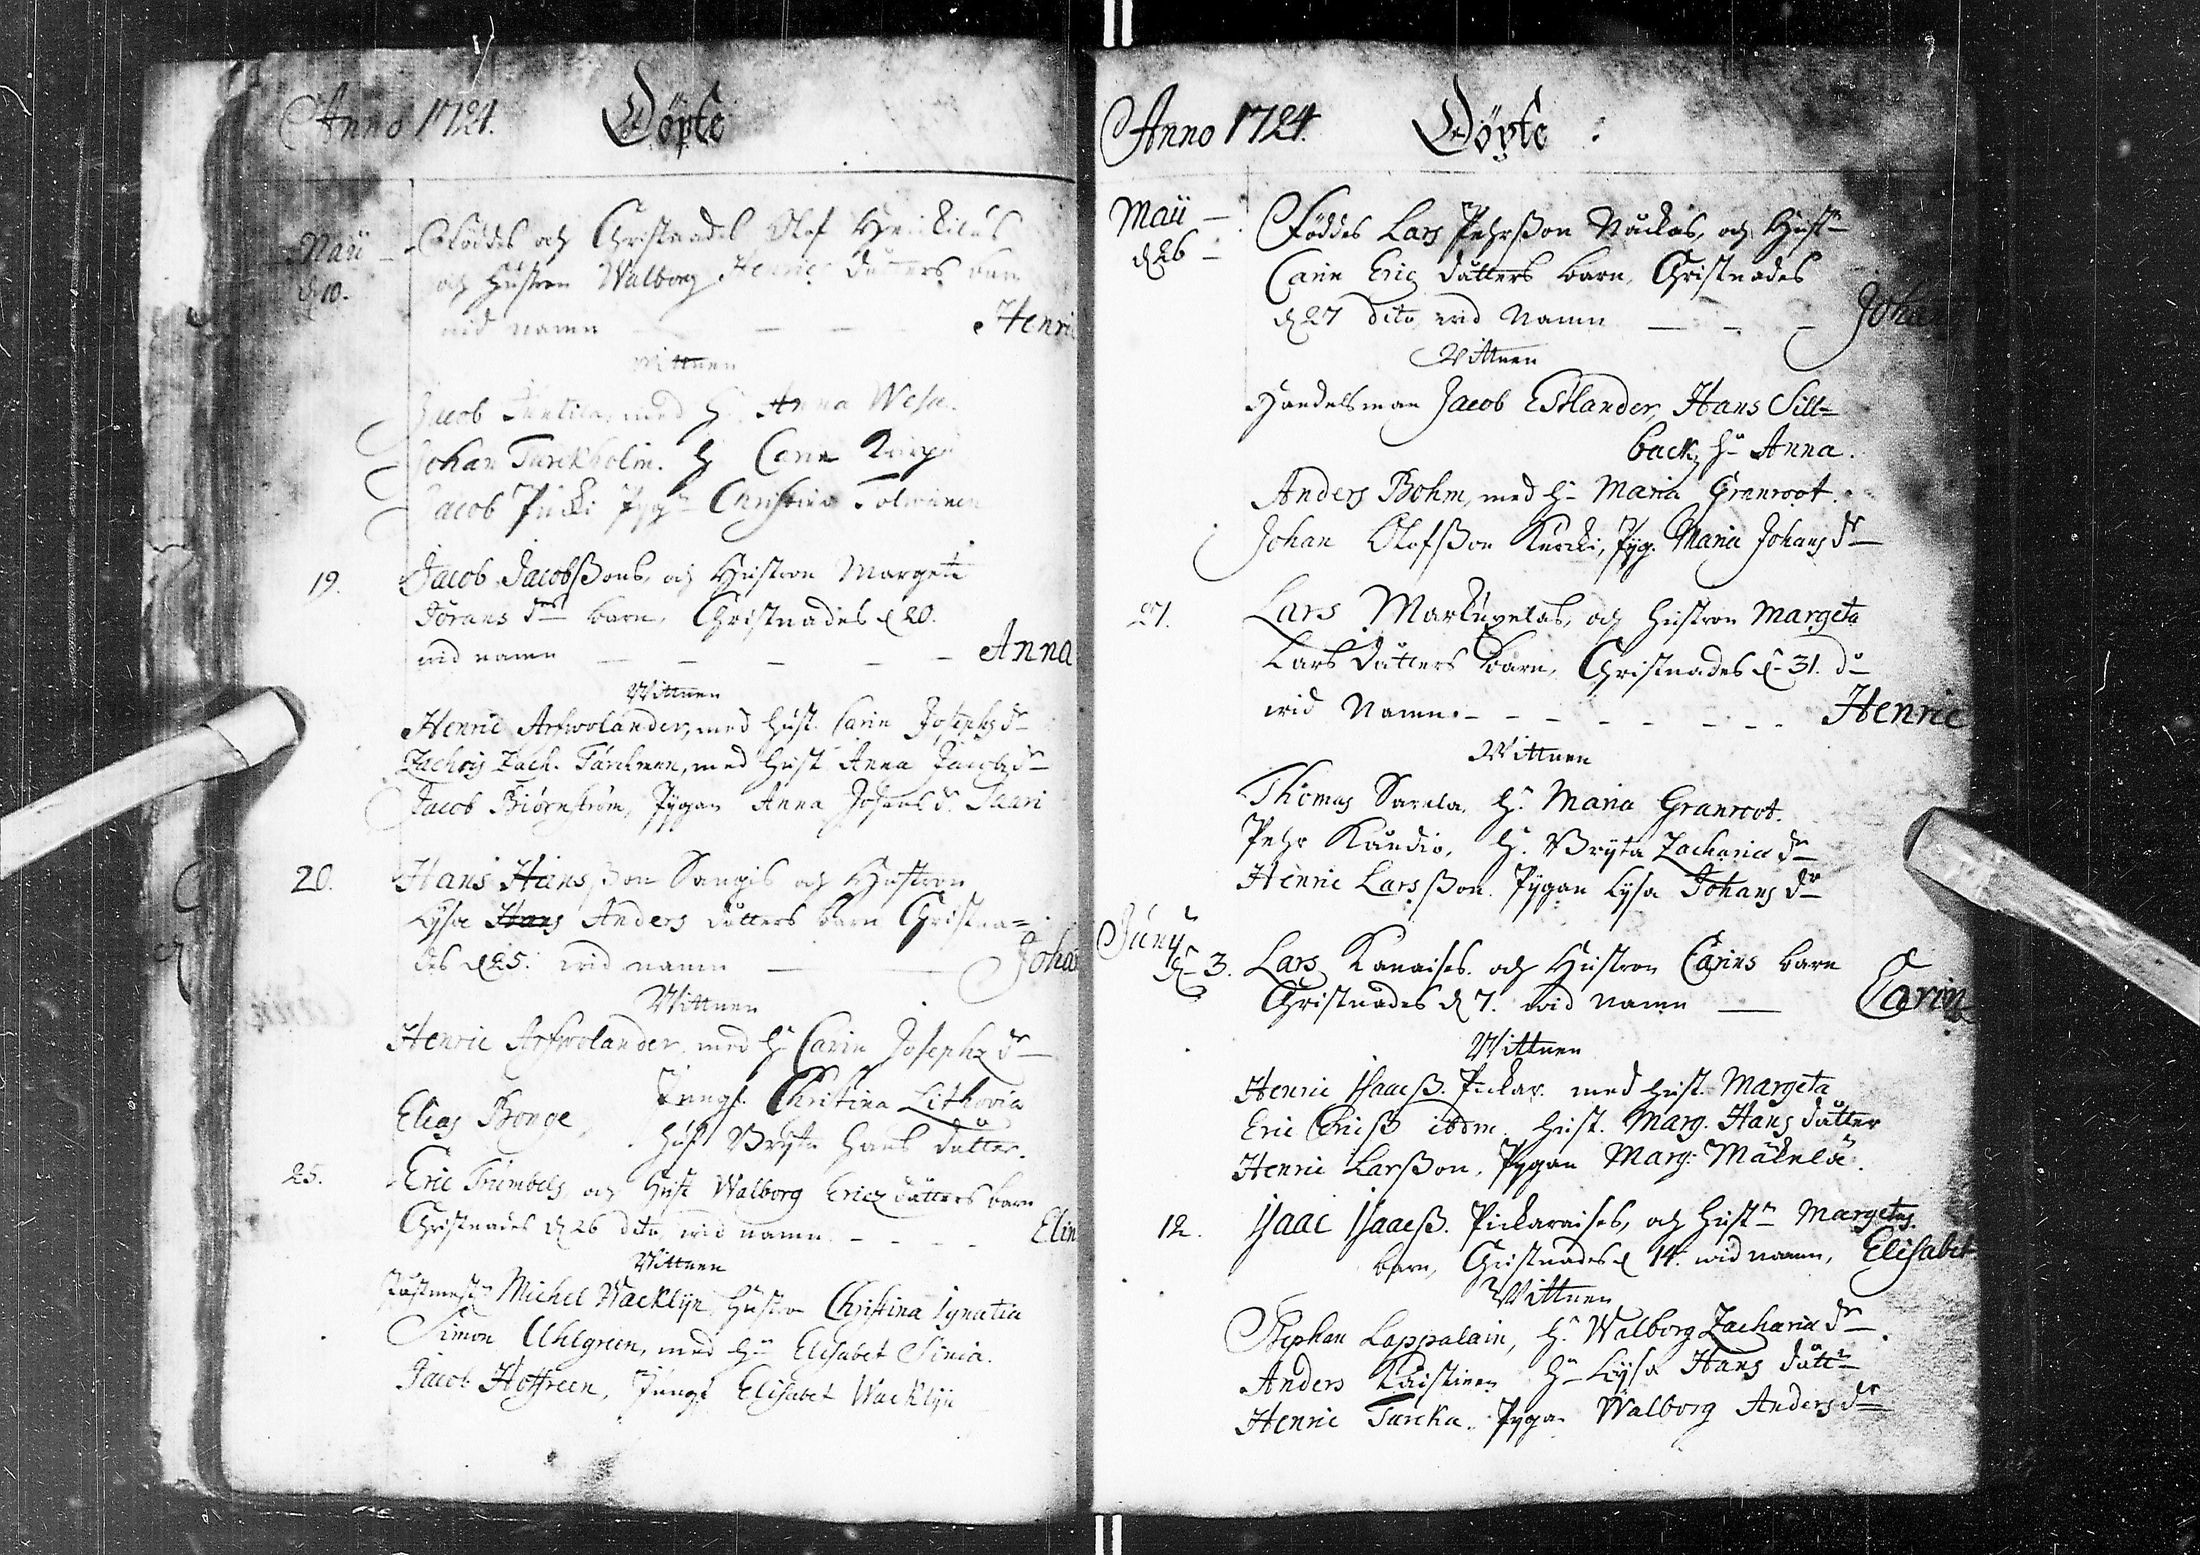 Anno 1724. Döpte
Maii
d 10.
Föddes och Christnades Olof
och Hustron Walborg Henric dåtters barn
vid namn — — — Henri
Wittnen
Jacob med H. Anna Wesa.
Johan Turckholm. H Carin
Jacob Pyg Christina
19.
Jacob Jacobßons, och Hustron Margeta
Jörans dr barn, Christnades d 20.
vid namn — — — — — Anna
Wittnen
Henric Arfwolander, med Hust. Carin Josephs dr
Zachris Zach. med Hust Anna Jacobs dr
Jacob Biörnström, Pygan Anna Johans d. Saari
20.
Hans Hansßon Sangis och Hustron
Lysa Hans Anders dåtters barn Christna=
des d 25. wid namn — — Joha
Wittnen
Henric Arfwolander, med H Carin Josephs dr
Elias Bonge, Jungf. Christina Lithovia
Hust Bryta Hans dåtter.
25.
Eric Trumbels och Hust Walborg Erics dåtters barn
Christnades d 26 dito, wid namn - - - - Elin
Wittnen
Postmest Michel Wacklijn, Hustro Christina Ignatia
Simon Uhlgreen, med H Elisabet Sinia.
Jacob Hoffreen, Jungf Elisabet Wacklijn
Anno 1724. Döpte :
Maii —
d 26 —
Föddes Lars Pehrßon och Hust
Carin Erics dåtters barn, Christnades
d 27 dito, wid Namn — - - Johan
Wittnen
Handelsman Jacob Estlander, Hans Sill=
back, H Anna.
Anders Bohm, med H Maria Granroot.
Johan Olofßon Kurcki, Pyg. Maria Johans dr
27.
Lars och Hustron Margeta
Lars dåtters barn, Christnades d 31. do
wid Namn. - - - - - - - - Henric
Wittnen
Thomas Sarela, H. Maria Granroot.
Pehr H. Bryta Zacharia dr
Henric Larsßon. Pygan Lysa Johans dr
Juny
d 3.
Lars Kanaises och Hustron Carins barn
Christnades d 7. wid namn — Carin
Wittnen
Henric Isaacß. med Hust. Margeta
Eric Ericß ibdm. Hust. Marg. Hans dåtter
Henric Larßon, Pygan Marg. Mäkelä.
12.
Isaac Isaacß. Pickaraises, och Hustn Margetas
barn, Christnades d 14. wid namn, Elisabet
Wittnen
Stephan Lappalain, H. Walborg Zacharia dr
Anders H Lysa Hans dåtr
Henric Turcka. Pyga Walborg Anders dr